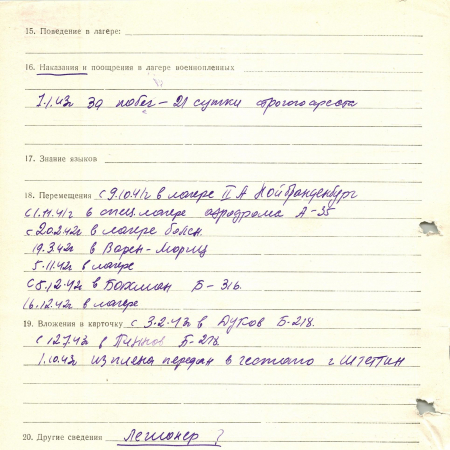 15. Поведение в лагере:
16. Наказания и поощрения в лагере военнопленных
1.1.43г за побег – 21 сутки строгого ареста
17. Знание языков
18. Перемещения с 9.10.41г в лагере II А Нойбранденбург
с 1.11.41г в спец.лагере аэродрома А-35
с 20.2.42г в лагере болен.
19.3.42г в Варен-Мориц
5.11.42г в лагере
с 5.12.42г в Бохман Б-316.
16.12.42г в лагере
19. Вложения в карточку с 3.2.43 в Дуков Б-218.
с 12.7.43г в Б-218
1.10.43г из плена передан в гестапо г Штеттин
20. Другие сведения легионер ?